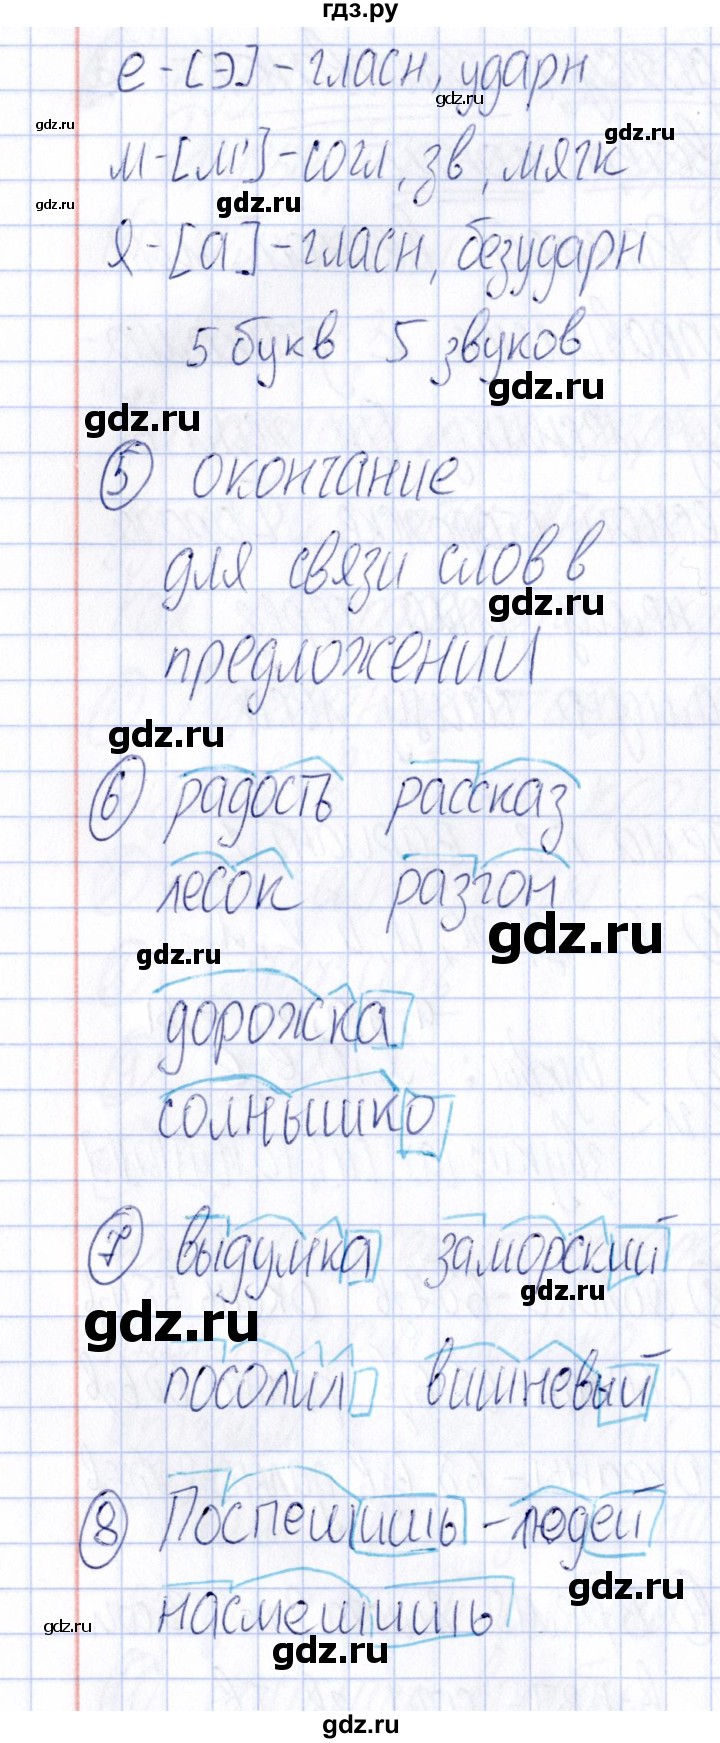 гдз.ру
е-[э]-гласн, ударн
gdz.ru
gdz.ru
gdz.ru
м-[м']-согл, зв, мягк
gdz.ru
gdz.ru
я-[а]-гласн, безударн
5 букв 5 звуков
gdz.ru
gdz.ru
5 окончание
для связи слов в
gdz.ru
предложении
gdz.ru
6 радость рассказ
лесок разгон
gdz.ru
gdz.ru
дорожка
солнышко
7 выдумка заморский
gdz.ru
gdz.ru
посолил вишневый
8 Поспешишь - людей
gdz.ru
насмешишь
gdz.ru
gdz.ru
gdz.ru